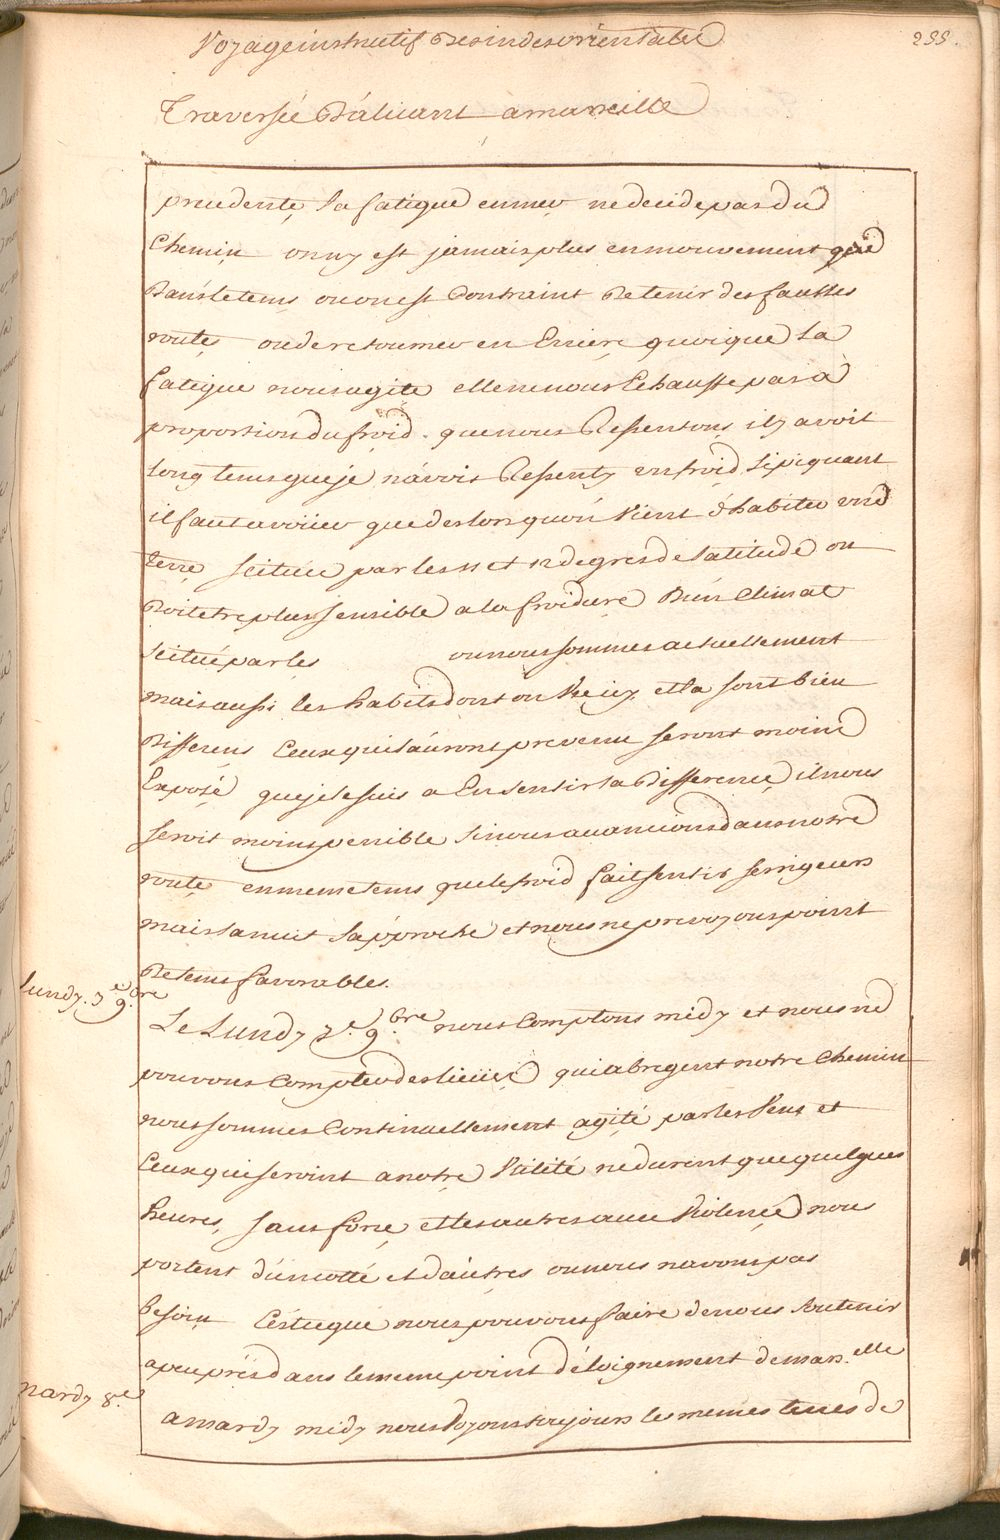 Voyage instructif Des indes orientales
255.
Traversée D'alicant a marseille
precedente, la fatigue en mer ne decide pas du
Chemin on n'y est jamais plus en mouvement que
Dans le tems ou on est Contraint De tenir des fausses
route, ou de retourner en Errière, quoique la
fatigue nous agite elle ne nous Echauffe pas à
proportion du froid. que nous Ressentons, il y avoit
long tems que je n'avois Ressenty un froid si piquant
il faut avoüer que des lors qu'on Vient d'habiter une
terre scituée par les 11 et 12 degres de latitude on
Doit etre plus sensible a la froidure D'un Climat
scitué par les ou nous sommes actuellement
mais aussi les habits dont on Use icy et la sont bien
Differens Ceux qui s'auront prevenu seront moins
Exposé que je le suis a En sentir la Difference, il nous
seroit moins penible si nous avancions dans notre
route en meme tems que le froid fait sentir ses rigeurs
mais la nuit s'approche et nous ne prevoyons point
De tems favorables.
lundy. 7e 9.bre
Le Lundy 7.e 9.bre nous Comptons midy et nous ne
pouvons Compter des lieües qui abregent notre Chemin
nous sommes Continuellement agité par les Vens et
Ceux qui seroint a notre Utilité ne durent que quelques
heures, sans force, et les autres avec Violence nous
portent d'un cotté et d'autres ou nous n'avons pas
besoin C'est ce que nous pouvons faire de nous soutenir
a peu près dans le meme point d'éloignement de mars.elle
mardy 8.e
a mardy midy nous Voyons toujours les memes terres de